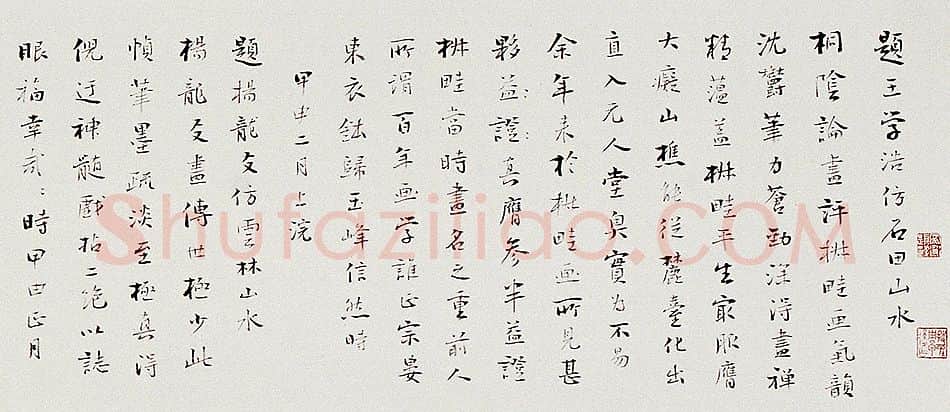 題王学浩仿石田山水
桐陰論畫評椒畦画氣韻
沈欝筆力蒼勁深得畫禅
精蘊蓋椒畦平生宷服膺
大癡山樵能従麓臺化出
直入元人堂奥實为不易
余年来於椒畦画所見甚
夥益證真膺参半益證
椒畦當時畫名之重前人
所謂百年画学誰正宗晏
東衣鉢歸玉峰信然時
甲申二月上浣
題楊龍友仿雲林山水
楊龍友畫傳世極少此
幀華墨疏淡至極真得
倪迂神髓戲拈二絶以誌
眼福幸甚時甲申正月
Shufaziliao.com